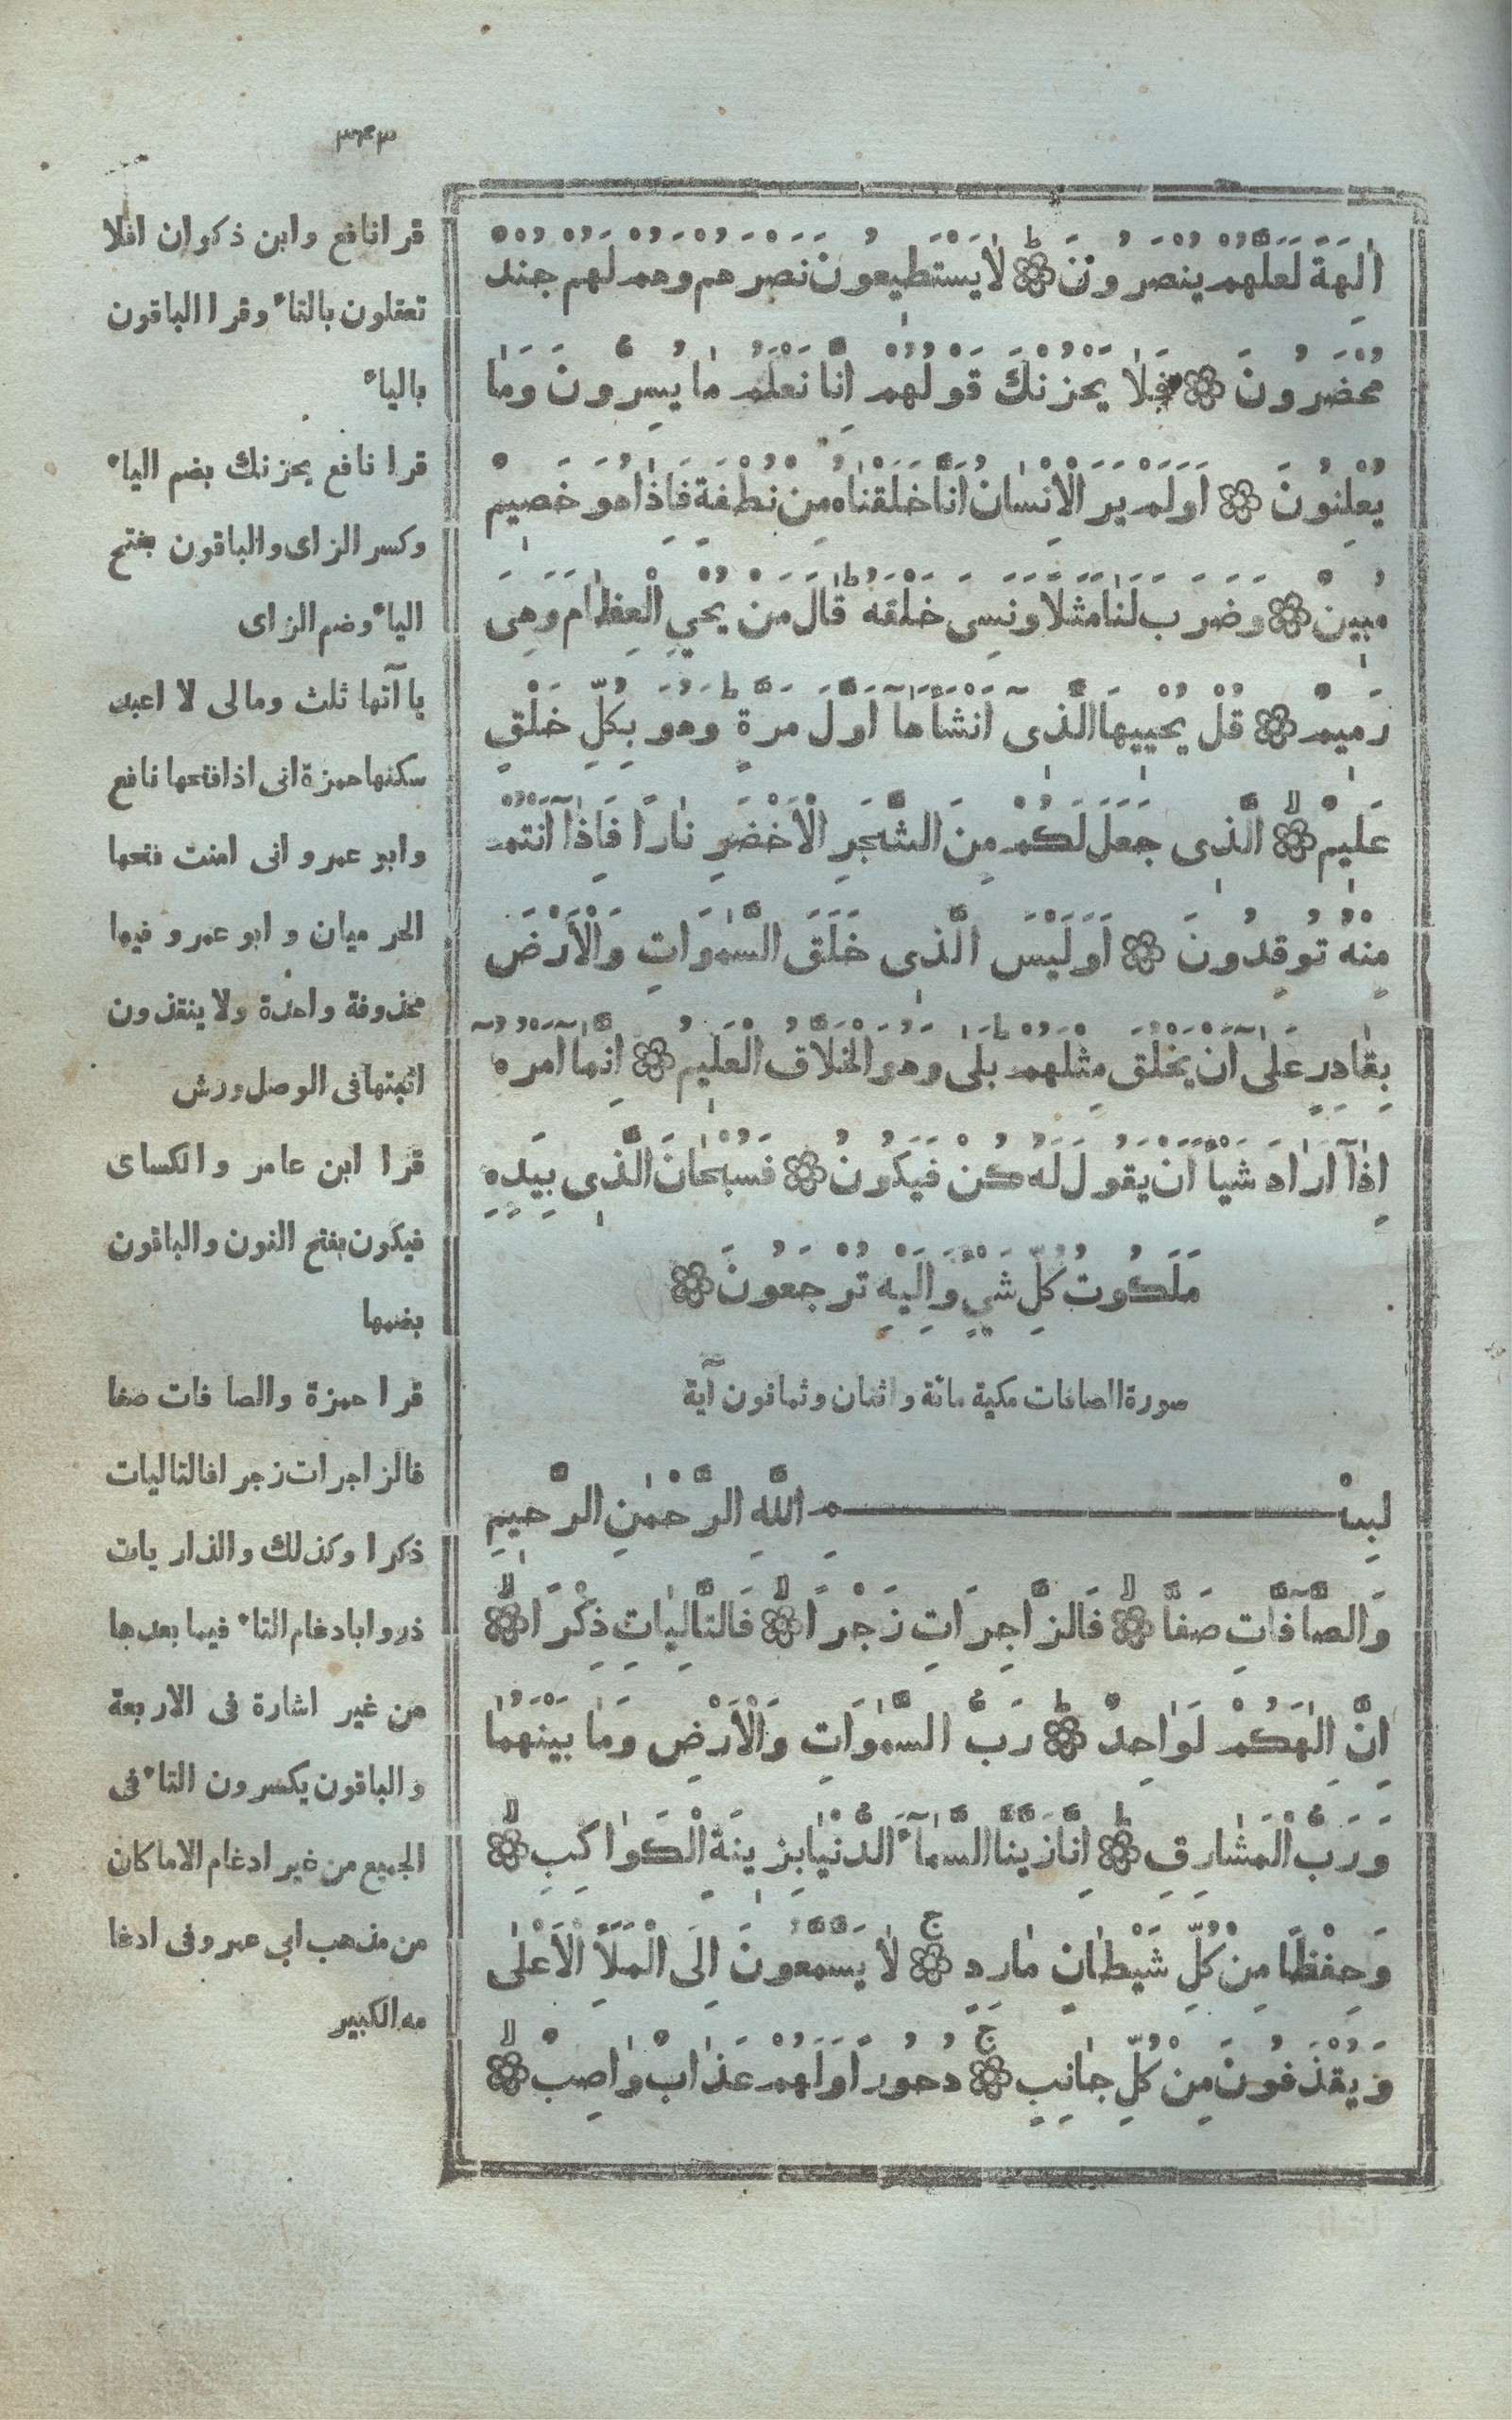 ٣٦٣
اٰلِهَةً لَعَلَّهُمْ يُنْصَرُوْنَ ۞ لَا يَسْتَطٖيعُونَ نَصْرَهُمْ وَهُمْ لَهُمْ جُنْدٌ
مُحْضَرُونَ ۞ فَلَا يَحْزُنْكَ قَوْلُهُمْ اِنَّا نَعْلَمُ مٰا يُسِرُّونَ وَمٰا
يُعْلِنُونَ ۞ اَوَلَمْ يَرَ الْاِنْسٰانُ اَنَّا خَلَقْنٰاهُ مِنْ نُطْفَةٍ فَاِذٰا هُوَ خَصٖيمٌ
مُبٖينٌ ۞ وَضَرَبَ لَنٰا مَثَلًا وَنَسِىَ خَلْقَهُ ط قٰالَ مَنْ يُحْيِ الْعِظٰامَ وَهِىَ
رَمٖيمٌ ۞ قُلْ يُحْيٖيهَا الَّذٖى اَنْشَاَهٰآ اَوَّلَ مَرَّةٍ ط وَهُوَ بِكُلِّ خَلْقٍ
عَلٖيمٌ ۞ لا الَّذٖى جَعَلَ لَكُمْ مِنَ الشَّجَرِ الْاَخْضَرِ نٰارًا فَاِذٰآ اَنْتُمْ
مِنْهُ تُوقِدُونَ ۞ اَوَلَيْسَ الَّذٖى خَلَقَ السَّمٰوَاتِ وَالْاَرْضَ
بِقٰادِرٍ عَلٰىٓ اَنْ يَخْلُقَ مِثْلَهُمْ ط بَلٰى وَهُوَ الْخَلَّاقُ الْعَلٖيمُ ۞ اِنَّمٰآ اَمْرُهُٓ
اِذٰآ اَرٰادَ شَيْأً اَنْ يَقُولَ لَهُ كُنْ فَيَكُونُ ۞ فَسُبْحٰانَ الَّذٖى بِيَدِهِ
مَلَكُوتُ كُلِّ شَيْءٍ وَاِلَيْهِ تُرْجَعُونَ ۞
صورة الصافات مكية مائة واثنان وثمانون آية
بِسْمِ اللَّهِ الرَّحْمٰنِ الرَّحٖيمِ
وَالصَّآفَّاتِ صَفًّا ۞ لا فَالزَّاجِرَاتِ زَجْرًا ۞ لا فَالتَّالِيٰاتِ ذِكْرًا ۞ لا
اِنَّ اِلٰهَكُمْ لَوٰاحِدٌ ۞ ط رَبُّ السَّمٰوَاتِ وَالْاَرْضِ وَمٰا بَيْنَهُمٰا
وَرَبُّ الْمَشٰارِقِ ۞ ط اِنَّا زَيَّنَّا السَّمٰآءَ الدُّنْيٰا بِزٖينَةٍ الْكَوٰاكِبِ ۞ لا
وَحِفْظًا مِنْ كُلِّ شَيْطٰانٍ مٰارِدٍ ۞ ج لٰا يَسَّمَّعُونَ اِلَى الْمَلَاِ الْاَعْلٰى
وَيُقْذَفُونَ مِنْ كُلِّ جٰانِبٍ ۞ ج دُحُورًا وَلَهُمْ عَذٰابٌ وٰاصِبٌ ۞ لا
قرا نافع وابن ذكوان افلا
تعقلون بالتاء وقرا الباقون
بالياء
قرا نافع يحزنك بضم الياء
وكسر الزاى والباقون بفتح
الياء وضم الزاى
يا آتها ثلث ومالى لا اعبد
سكنها حمزة انى اذا فتحها نافع
وابو عمرو انى امنت فتحها
الحرميان وابو عمرو فيها
محذوفة واحدة ولا ينقذون
اثبتها فى الوصل ورش
قرا ابن عامر والكساى
فيكون بفتح النون والباقون
بضمها
قرا حمزة والصافات صفا
فالزاجرات زجرا فالتاليات
ذكرا وكذلك والذاريات
ذروا بادغام التاء فيما بعدها
من غير اشارة فى الاربعة
والباقون يكسرون التاء فى
الجميع من غير ادغام الا ما كان
من مذهب ابى عمرو فى ادغا
مه الكبير